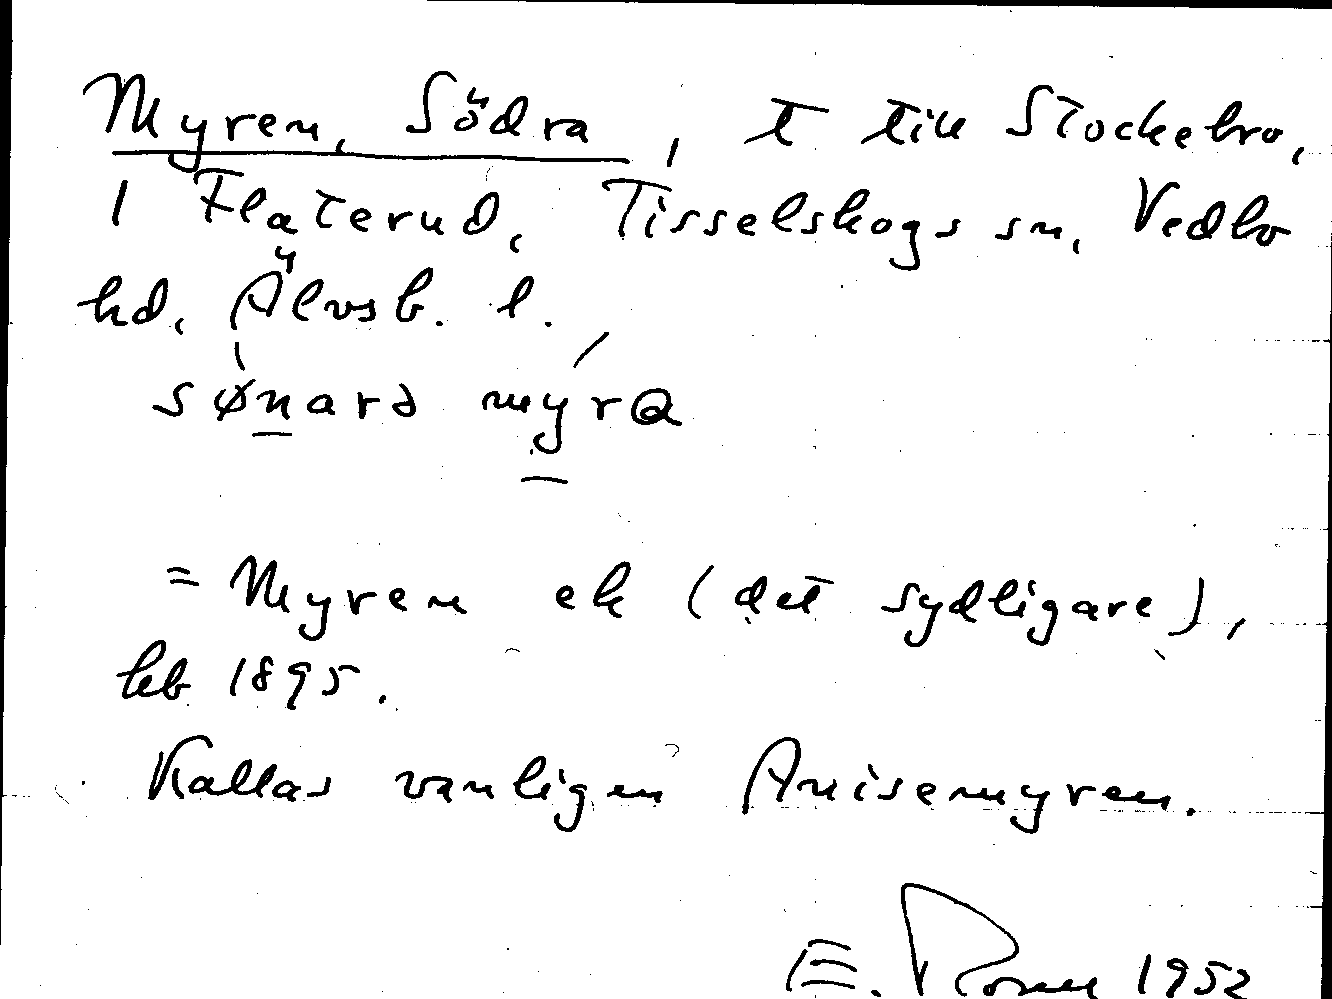 Myren, Södra, t till Stockebro,
1 Flaterud, Tisselskogs sn, Vedbo
hd, Älvsb. l.
sønarə myra
= Myren ek (det sydligare),
hb 1895.
Kallas vanligen Anisemyren.
E. 1952